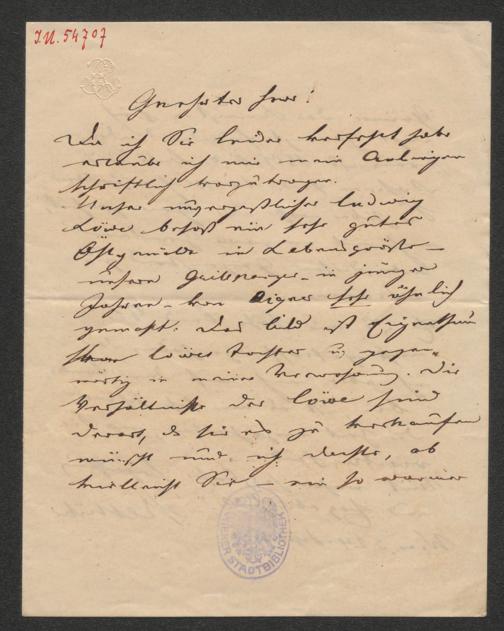 I.N. 54707
Geehrter Herr!
Da ich Sie leider verfehlt habe
erlaube ich mir mein Anliegen
schriftlich vorzutragen.
Unser unvergeßlicher Ludwig
Löwe besaß ein sehr gutes
Ölgemälde in Lebensgröße –
unsern Grillparzer – in jüngern
Jahren – von Aigner sehr ähnlich
gemalt. Das Bild ist Eigenthum
Löwes Tochter u. gegen-
wärtig in meiner Verwahrung. Die
Verhältniße der Löwe sind
derart, daß sie es zu verkaufen
wünscht und ich dachte, ob
vielleicht Sie – ein so warmer
WIENER STADTBIBLIOTHEK